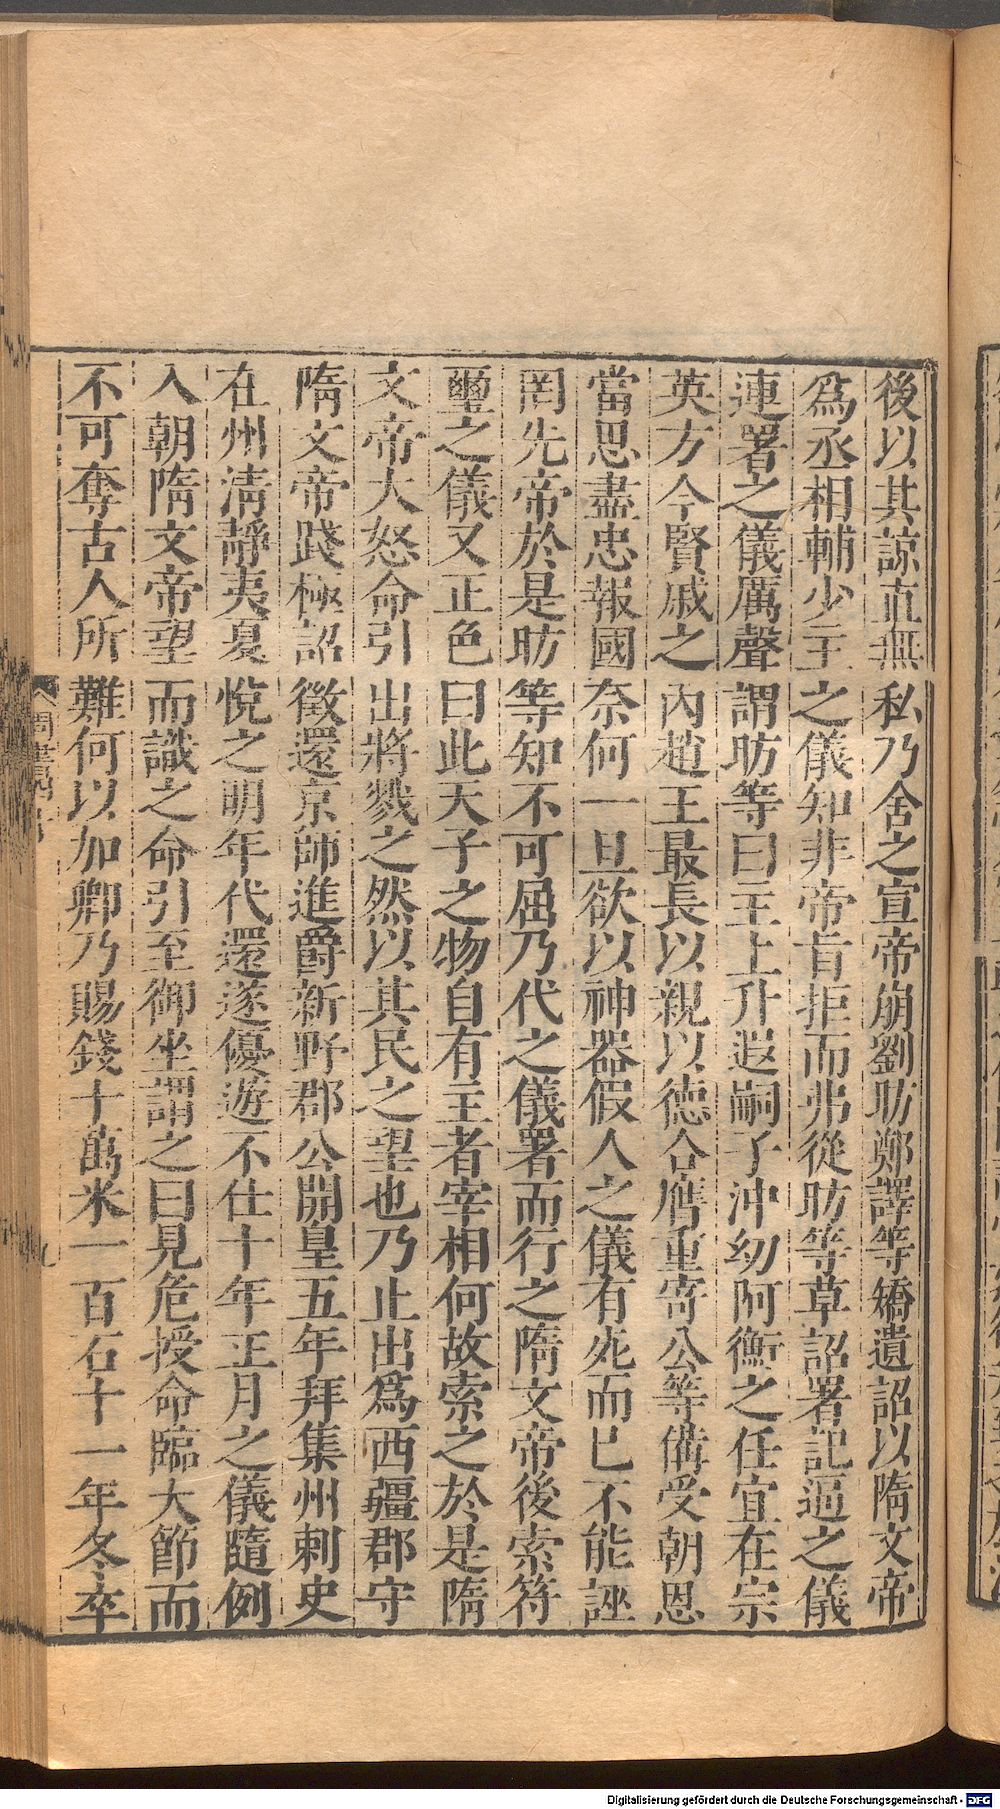 後以其諒直無私乃舍之宣帝崩劉昉鄭譯等矯遺詔以隋文帝
爲丞相輔少主之儀知非帝旨拒而弗從昉等草詔署記逼之儀
連署之儀厲聲謂昉等曰主上升遐嗣子沖幼阿衡之任宜在宗
英方今賢戚之內趙王最長以親以德合膺重寄公等備受朝恩
當思盡忠報國奈何一旦欲以神器假人之儀有死而已不能誣
罔先帝於是昉等知不可屈乃代之儀署而行之隋文帝後索符
璽之儀又正色曰此天子之物自有主者宰相何故索之於是隋
文帝大怒命引出將戮之然以其民之望也乃止出爲西疆郡守
隋文帝踐極詔徵還京師進爵新野郡公開皇五年拜集州刺史
在州清靜夷夏悅之明年代還遂優遊不仕十年正月之儀隨例
入朝隋文帝望而識之命引至御坐謂之曰見危授命臨大節而
不可奪古人所難何以加卿乃賜錢十萬米一百石十一年冬卒
Digitalisierung gefördert durch die Deutsche Forschungsgemeinschaft - DFG